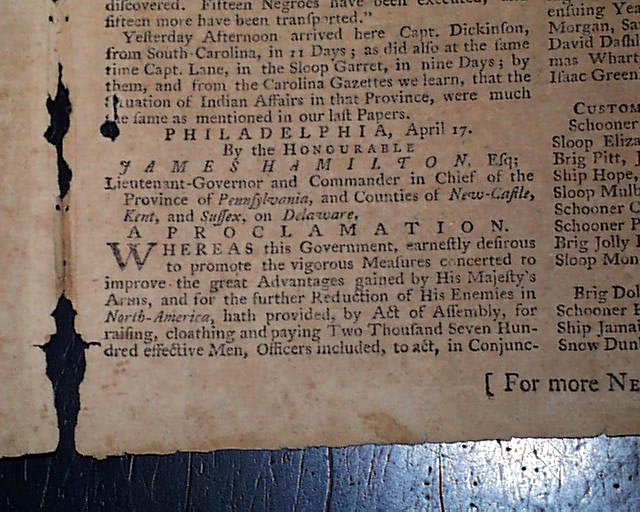 discovered. Fifteen Negroes have been executed, and
fifteen more have been transported."
Yeſterday Afternoon arrived here Capt. Dickinſon,
from South-Carolina, in 11 Days; as did alſo at the ſame
time Capt. Lane, in the Sloop Garret, in nine Days; by
them, and from the Carolina Gazettes we learn, that the
Situation of Indian Affairs in that Province, were much
the ſame as mentioned in our laſt Papers.
PHILADELPHIA, April 17.
By the HONOURABLE
JAMES HAMILTON, Eſq;
Lieutenant-Governor and Commander in Chief of the
Province of Pennſylvania, and Counties of New-Caſtle,
Kent, and Suſſex, on Delaware,
A PROCLAMATION.
WHEREAS this Government, earneſtly deſirous
to promote the vigorous Meaſures concerted to
improve the great Advantages gained by His Majeſty's
Arms, and for the further Reduction of His Enemies in
North-America, hath provided, by Act of Aſſembly, for
raiſing, cloathing and paying Two Thouſand Seven Hun-
dred effective Men, Officers included, to act, in Conjunc-
enſuing Yea
Morgan, Sa
David Daſhi
mas Whart
Iſaac Green
CUSTOM
Schooner
Sloop Eliza
Brig Pitt, J
Ship Hope,
Sloop Mulb
Schooner C
Schooner P
Brig Jolly
Sloop Mon
Brig Dol
Schooner
Ship Jamai
Snow Dun
[ For more NE